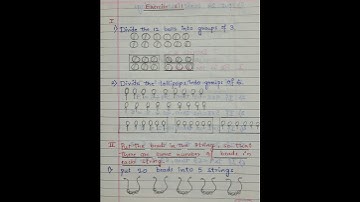 I
1) Divide the 12 balls into groups of 3.
2) Divide the lollipops into groups of 6.
II Put the beads in the strings, so that
there are same number of beads in
each string.
1) put 20 beads into 5 strings.